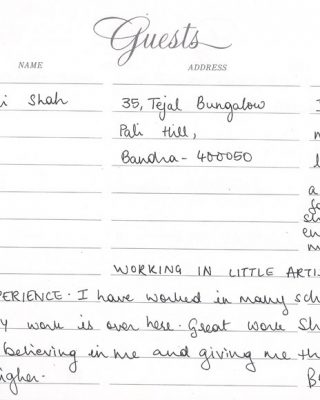 Guests
NAME ADDRESS
i Shah 35, Tejal Bungalow
Pali Hill,
Bandra - 400050
a
WORKING IN LITTLE ARTI
PERIENCE. I have worked in many sch
y work is over here. Great work Sh
believing in me and giving me th
igher. B